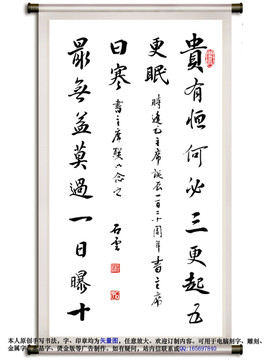 貴有恒何必三更起五
更眠
時逢毛主席誕辰一百二十周年書主席
最無益莫過一日曝十
日寒
書主席联以念之
石雲
本人原创手写书法,字、印章均为矢量图,任意放大,欢迎订制内容。可用于电脑刻字、雕刻、
金属字、水晶字、烫金版等广告制作。如有疑问,站内信联系或QQ:165697840